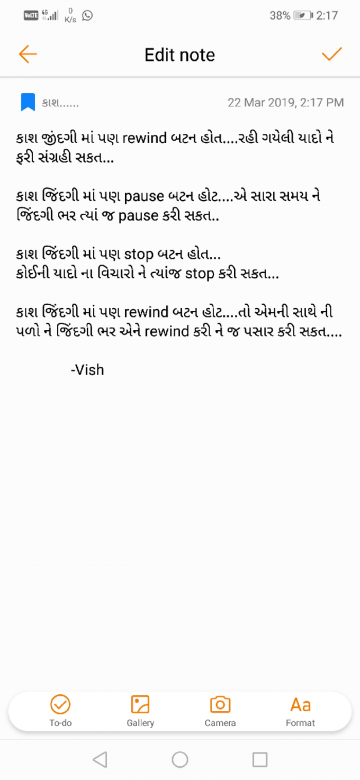 VoLTE 4G 0 K/s 38% 2:17
Edit note
કાશ...... 22 Mar 2019, 2:17 PM
કાશ જીંદગી માં પણ rewind બટન હોત....રહી ગયેલી યાદો ને
ફરી સંગ્રહી સકત...
કાશ જિંદગી માં પણ pause બટન હોટ....એ સારા સમય ને
જિંદગી ભર ત્યાં જ pause કરી સકત..
કાશ જિંદગી માં પણ stop બટન હોત...
કોઈની યાદો ના વિચારો ને ત્યાંજ stop કરી સકત...
કાશ જિંદગી માં પણ rewind બટન હોટ....તો એમની સાથે ની
પળો ને જિંદગી ભર એને rewind કરી ને જ પસાર કરી સકત....
-Vish
To-do Gallery Camera Aa Format